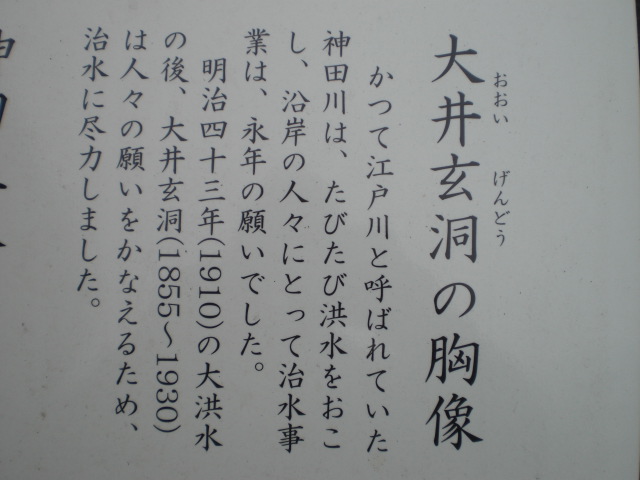 大井玄洞の胸像
おおい げんどう
かつて江戸川と呼ばれていた
神田川は、たびたび洪水をおこ
し、沿岸の人々にとって治水事
業は、永年の願いでした。
明治四十三年(1910)の大洪水
の後、大井玄洞(1855～1930)
は人々の願いをかなえるため、
治水に尽力しました。